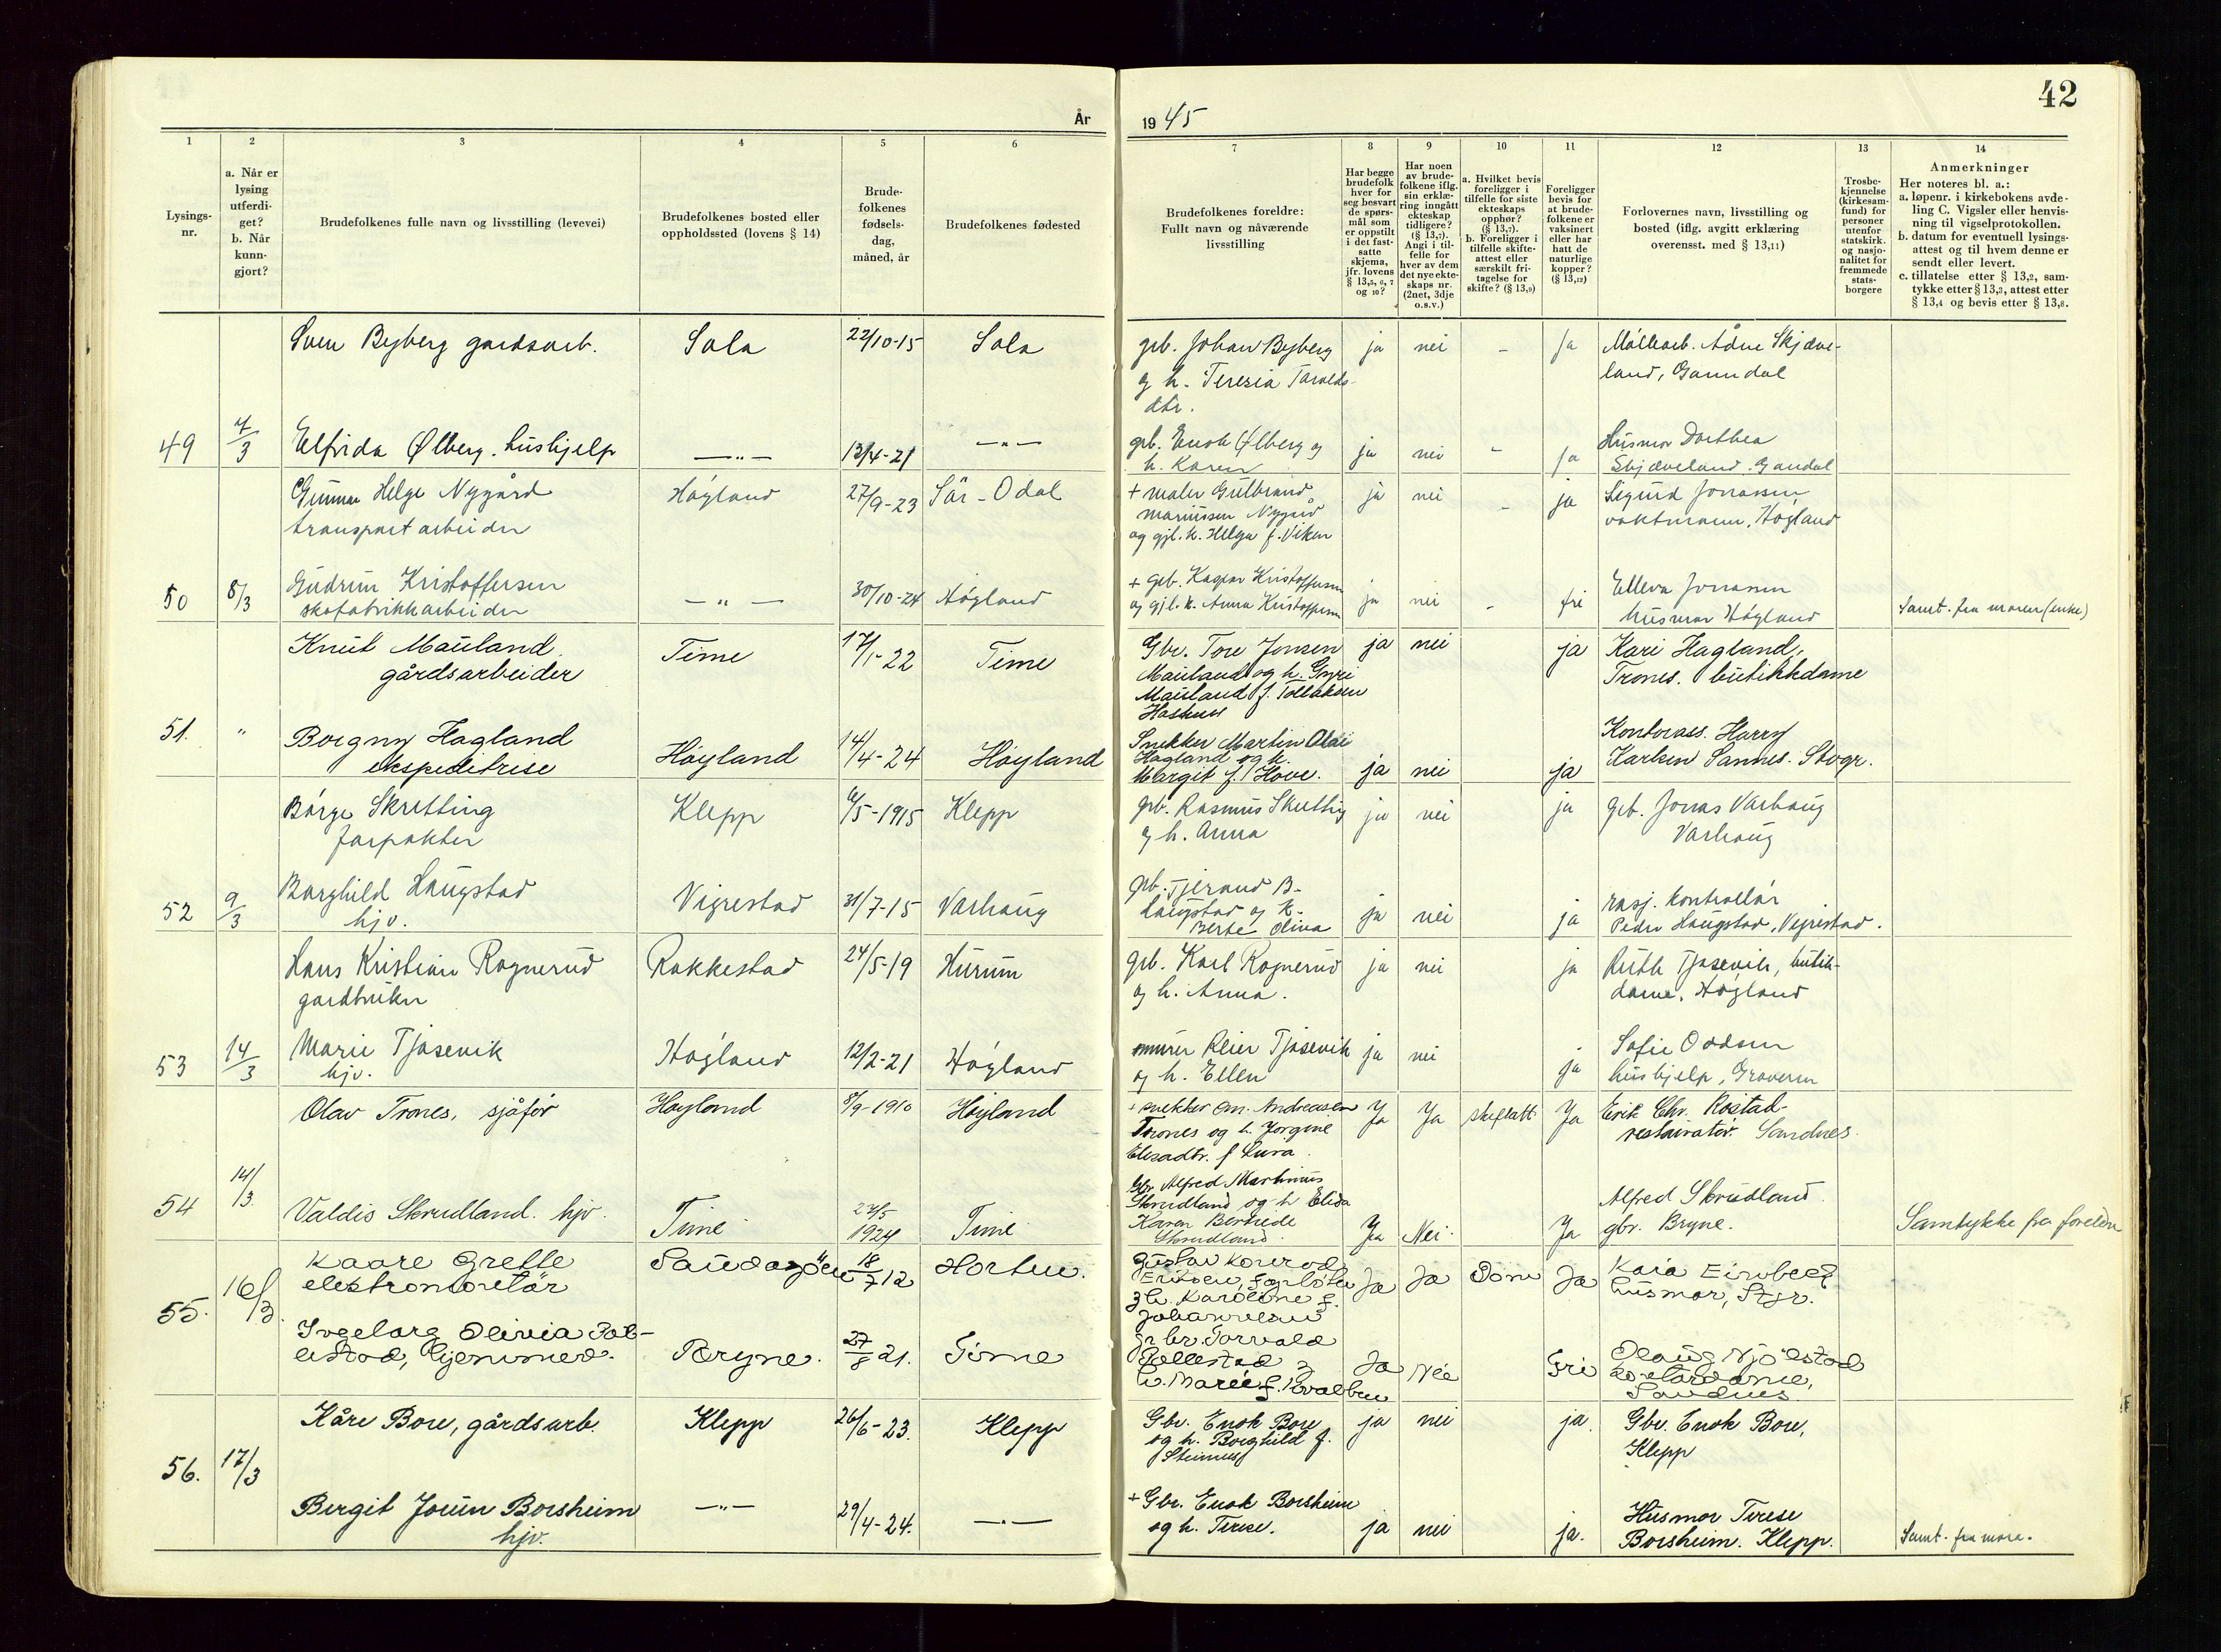 42
År
19 45
1
2
3
4
5
6
7
8
9
10
11
12
13
14
Lysings-
nr.
a. Når er
lysing
utferdi-
get?
b. Når
kunn-
gjort?
Brudefolkenes fulle navn og livsstilling (levevei)
Brudefolkenes bosted eller
oppholdssted (lovens § 14)
Brude-
folkenes
fødsels-
dag,
måned, år
Brudefolkenes fødested
Brudefolkenes foreldre:
Fullt navn og nåværende
livsstilling
Har begge
brudefolk
hver for
seg besvart
de spørs-
mål som
er oppstilt
i det fast-
satte
skjema,
jfr. lovens
§ 13,5, 6, 7
og 10?
Har noen
av brude-
folkene iflg.
sin erklæ-
ring inngått
ekteskap
tidligere?
(§ 13,7).
Angi i til-
felle for
hver av dem
det nye ekte-
skaps nr.
(2net, 3dje
o.s.v.)
a. Hvilket bevis
foreligger i
tilfelle for siste
ekteskaps
opphør?
(§ 13,7).
b. Foreligger i
tilfelle skifte-
attest eller
særskilt fri-
tagelse for
skifte? (§ 13,9)
Foreligger
bevis for
at brude-
folkene er
vaksinert
eller har
hatt de
naturlige
kopper?
(§ 13,12)
Forlovernes navn, livsstilling og
bosted (iflg. avgitt erklæring
overensst. med § 13,11)
Trosbe-
kjennelse
(kirkesam-
fund) for
personer
utenfor
statskirk.
og nasjo-
nalitet for
fremmede
stats-
borgere
Anmerkninger
Her noteres bl. a.:
a. løpenr. i kirkebokens avde-
ling C. Vigsler eller henvis-
ning til vigselprotokollen.
b. datum for eventuell lysings-
attest og til hvem denne er
sendt eller levert.
c. tillatelse etter § 13,2, sam-
tykke etter § 13,3, attest etter
§ 13,4 og bevis etter § 13,8.
Sven Byberg gardsarb. Sola 22/10-15 Sola grb. Johan Byberg ja nei - Ja Møllearb. Ådne Skjæve-
og h. Terezia Taralds- land, Ganndal
dtr.
49 7/3 Elfrida Ølberg. hushjelp —"— 13/4-21 —"— grb. Enok Ølberg og ja nei - ja Husmor Dorthea
h. Karen Skjæveland. Gandal
Gunnar Helge Nygård Høyland 27/9-23 Sør-Odal + maler Gulbrand ja nei - ja Sigurd Jonassen
transportarbeider Mariussen Nygård vaktmann, Høyland
og gjl. h. Helga f. Viken
50 8/3 Gudrun Kristoffersen —"— 30/10-24 Høyland + grb. Kaspar Kristoffersen ja nei - fri Elleva Jonassen
skofabrikkarbeider og gjl. h. Anna Kristoffersen husmor Høyland Samt. fra moren (enke)
Knut Mauland Time 17/1-22 Time Gbr. Tore Jonsen ja nei ja Kari Hagland,
gårdsarbeider Mauland og h. Guri Trones. butikkdame
Mauland f. Tollaksen
51. " Borgny Hagland Høyland 14/4-24 Høyland Snekker Martin Olai Kontorass. Harry
ekspeditrise Hagland og h. Karlsen Sannes. Stvgr.
Margit f. Hove. ja nei ja
Børge Skretting Klepp 6/5-1915 Klepp grb. Rasmus Skretting ja nei ja grb. Jonas Varhaug
forpakter og h. Anna Varhaug
52 9/3 Borghild Haugstad Vigrestad 31/7-15 Varhaug grb. Tjerand B. ja nei ja rasj. kontrollør
hjv. Haugstad og h. Peder Haugstad, Vigrestad.
Berte Olina
Hans Kristian Rognerud Rakkestad 24/5-19 Hurum grb. Karl Rognerud ja nei ja Ruth Tjøsevik, butik-
gardbruker og h. Anna. dame, Høyland
53 14/3 Marie Tjøsevik Høyland 12/2-21 Høyland murer Reier Tjøsevik ja nei ja Sofie Oddsen
hjv. og h. Ellen hushjelp, Graveren
Olav Trones, sjåfør Høyland 8/9-1910 Høyland + snekker Andreasen Ja Ja skiflatt. Ja Erik Chr. Rostad
Trones og h. Jorgine restauratør. Sandnes.
f Lura.
54 14/3. Valdis Skrudland. hjv. Time 24/5 1924 Time Gbr Alfred Martinius Alfred Skrudland
Skrudland og h Elida gbr. Bryne. Samtykke fra foreldre
Karen Bertrede
Skrudland. Ja Nei Ja
55. 16/3. Kaare Grette 18/7 12 Horten. Gustav Konrad Ja Ja Dom Ja Kaia
elektromontør Eriksen, husmor, Stgr.
og h. Karoline f.
Johannesen
Ingeborg Olivia Pol- Bryne. 27/8 21. Time gr. br. Torvald
lestad, hjemmev. Pollestad og Ja Nei Fri Sandnes
h. Marie f. Kvalbein
56. 17/3 Kåre Bore, gårdsarb. Klepp 26/6-23. Klepp Gbr. Enok Bore ja nei ja. Gbr. Enok Bore,
og h. Borghild f. Klepp
Bergit Jorun Borsheim —"— 29/4-24. —"— + Gbr. Enok Borsheim Husmor Terese
hjv. og h. Terese. ja nei ja. Borsheim. Klepp. Samt. fra mora.